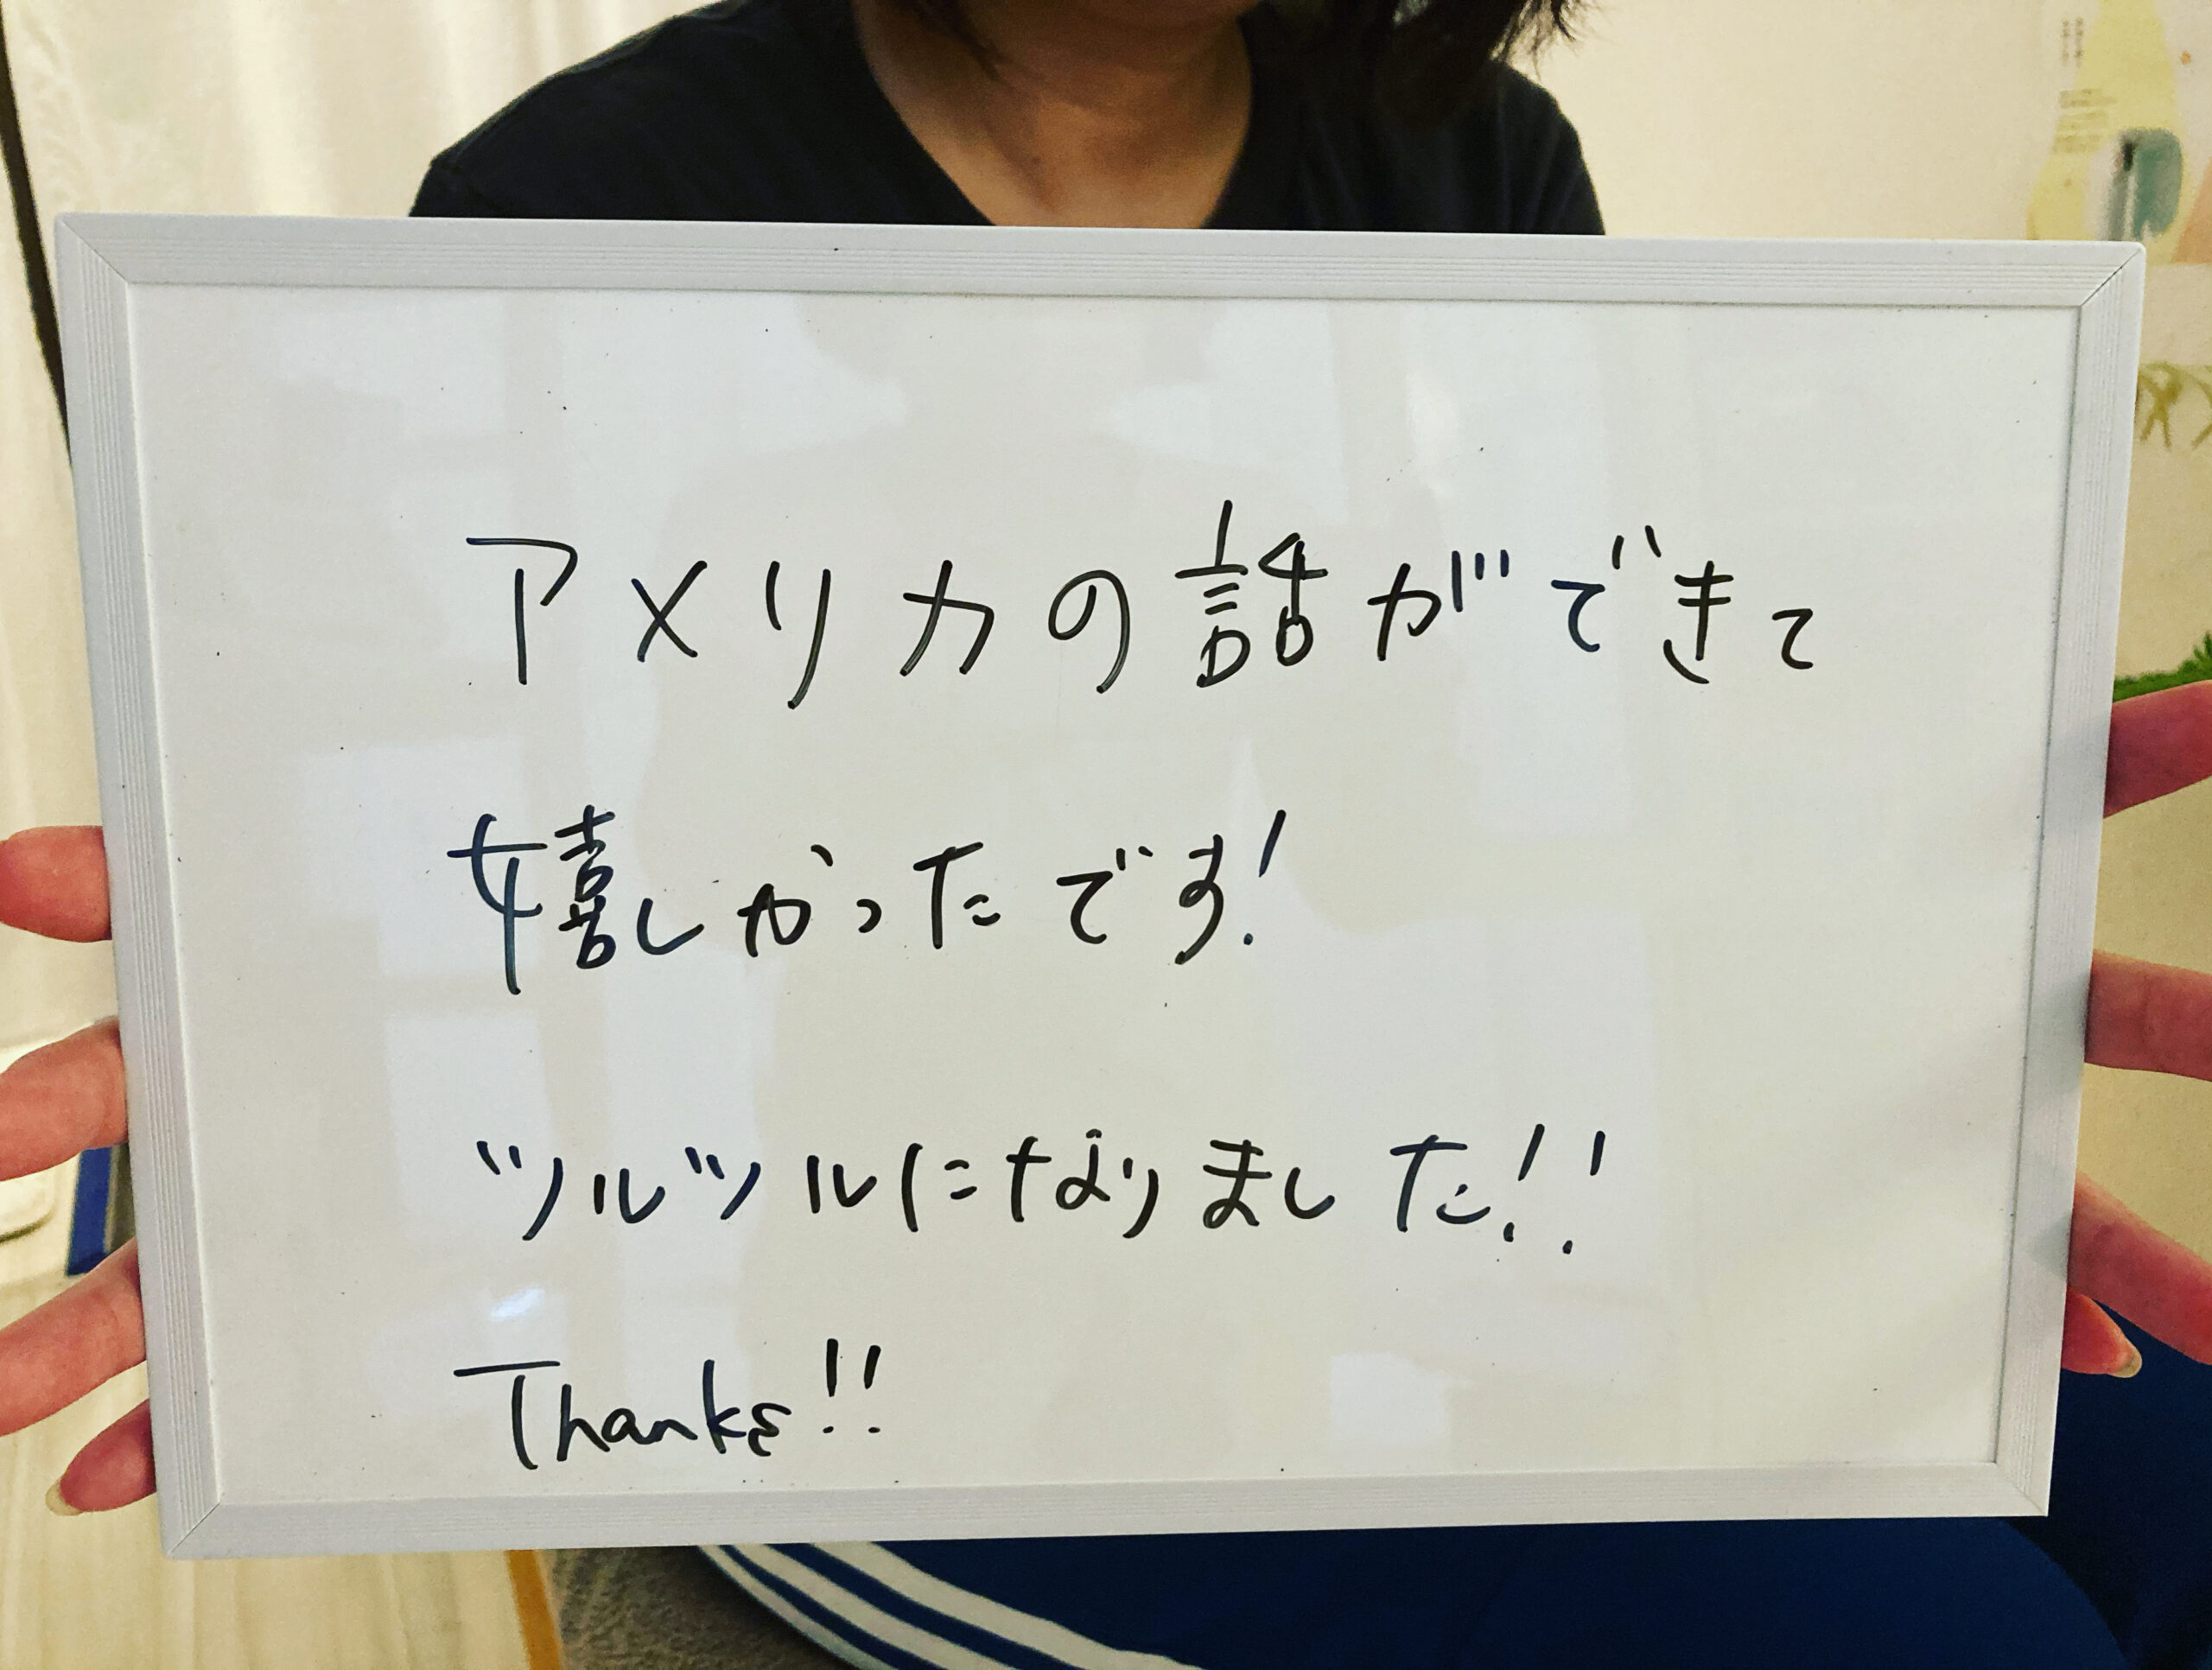 アメリカの話ができて
嬉しかったです!
ツルツルになりました!!
Thanks!!